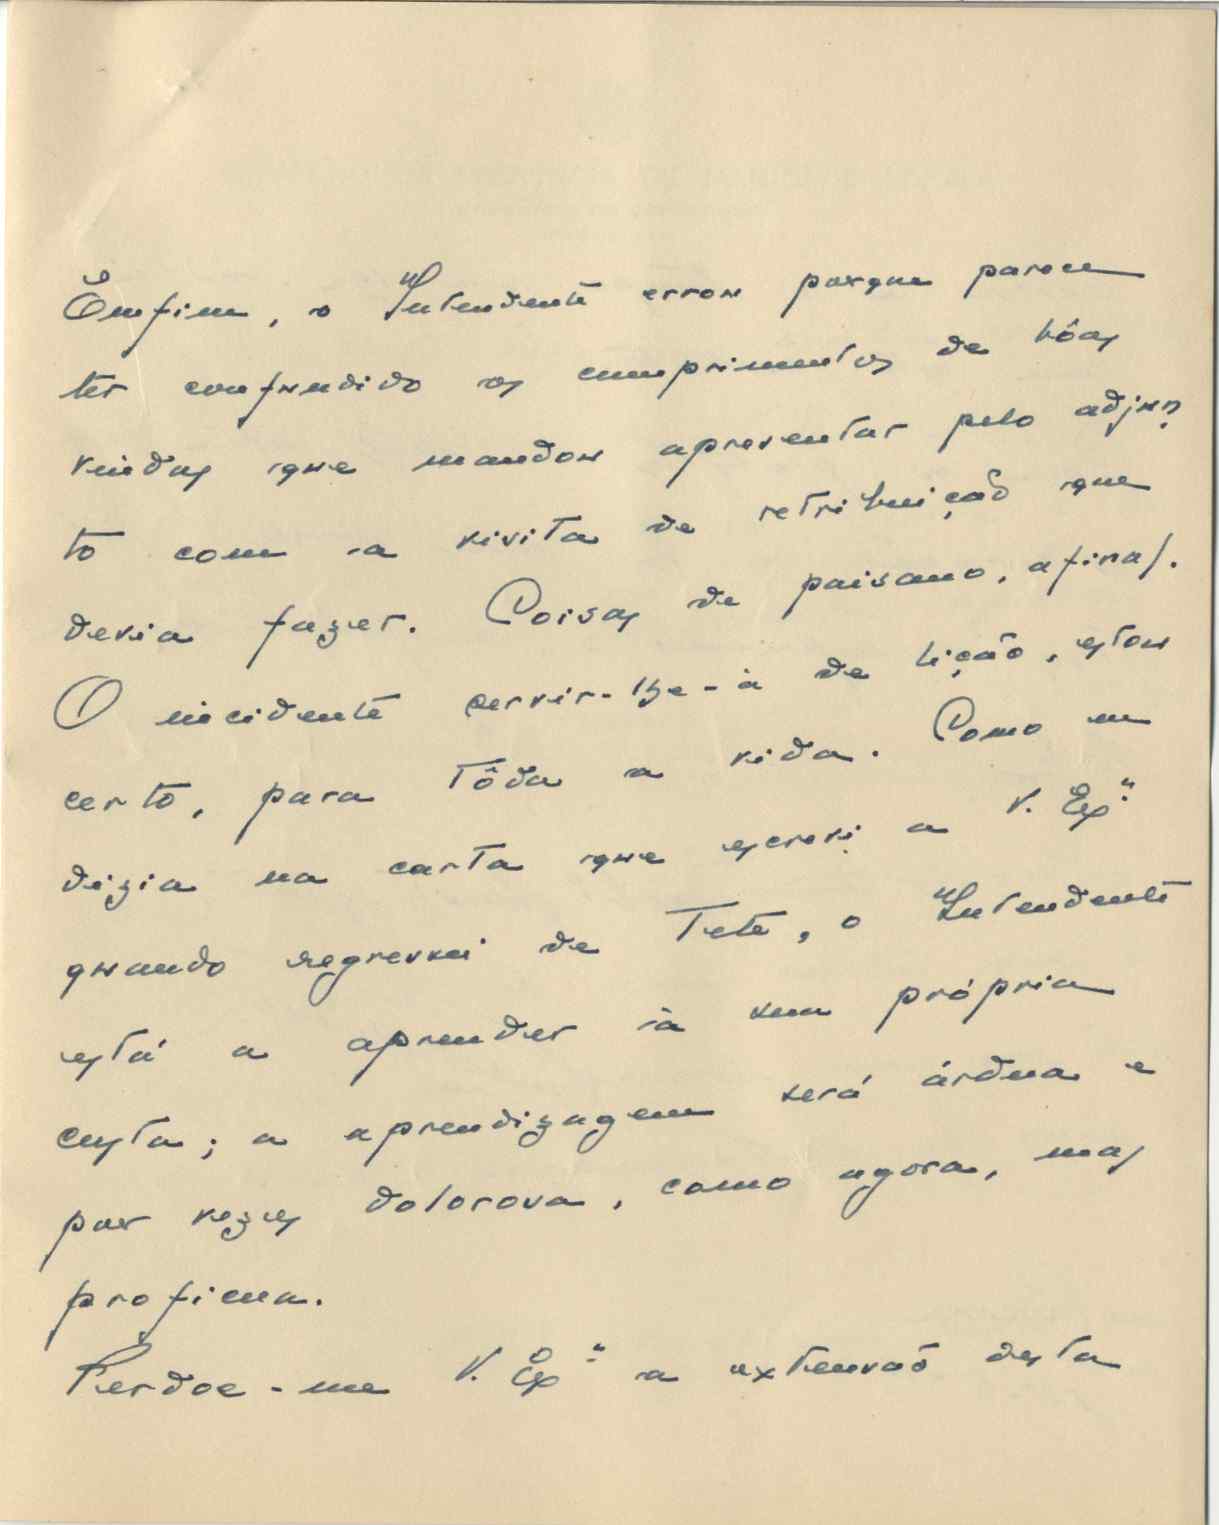 Emfim, o Intendente errou porque parece
ter confundido os cumprimentos de bôas
vindas que mandou apresentar pelo adjun
to com a visita de retribuição que
devia fazer. Coisas de paisano, afinal.
O incidente servir-lhe-á de lição, estou
certo, para tôda a vida. Como eu
dizia na carta que escrevi a V. Exª
quando regressei de Tete, o Intendente
está a aprender à sua própria
custa; a aprendizagem será árdua e
por vezes dolorosa, como agora, mas
profícua.
Perdoe-me V. Exª a extensão desta